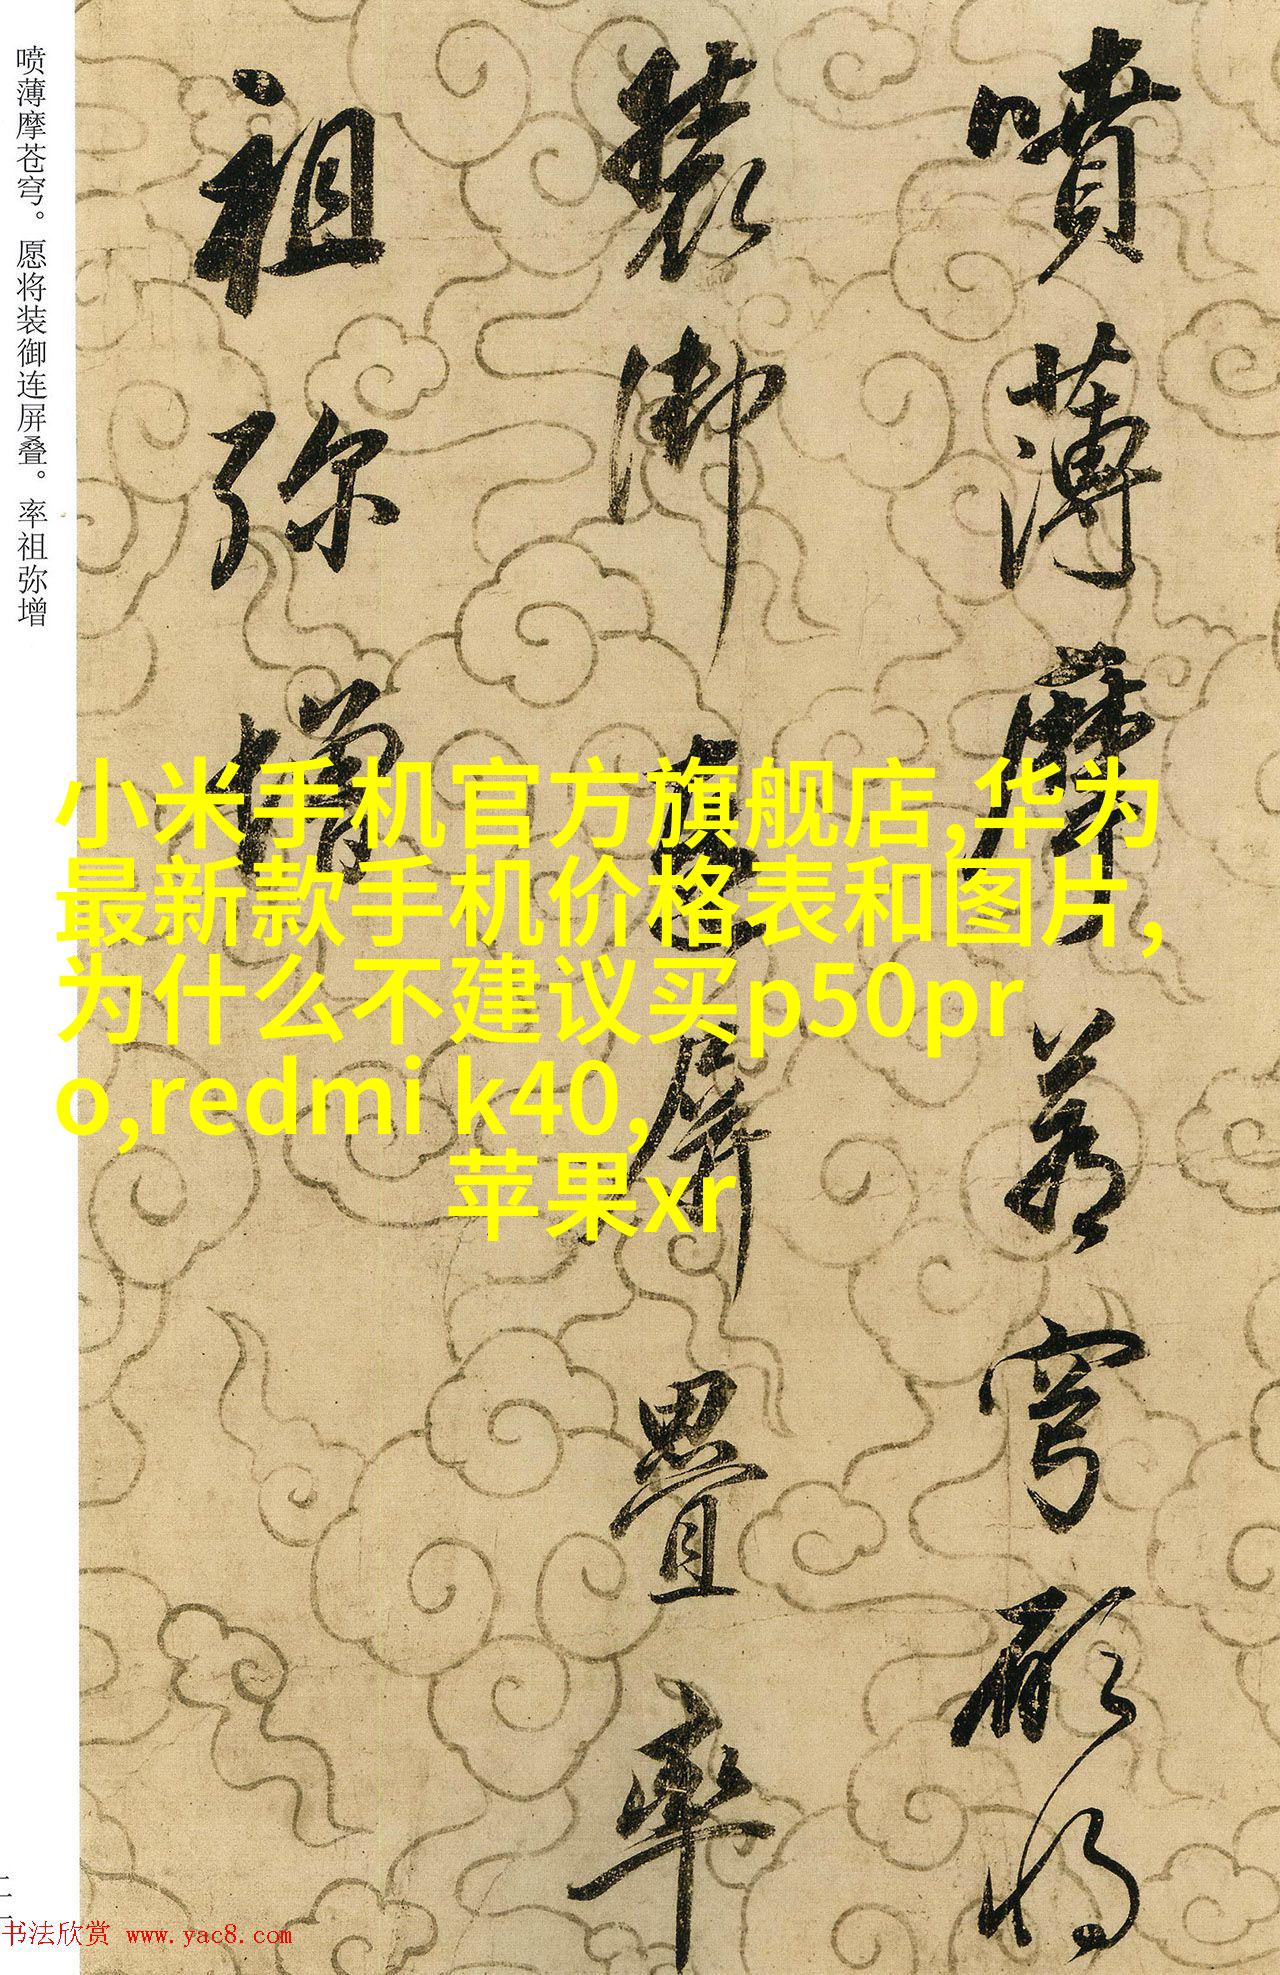 喷薄摩苍穹。愿将装御连屏叠。率祖弥增
噴薄摩蒼穹願將
裝御連屏疊率
祖弥增
小米手机官方旗舰店,华为
最新款手机价格表和图片,
为什么不建议买p50pr
o,redmi k40,
苹果xr
书法欣赏 www.yac8.com